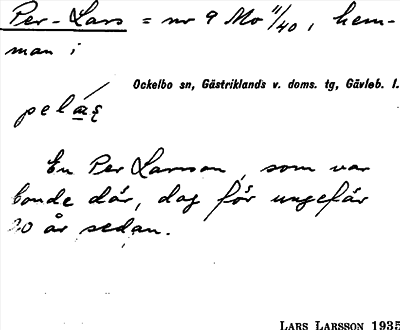 Per-Lars = nr 9 Mo 11/40, hem-
man i
Ockelbo sn, Gästriklands v. doms. tg, Gävleb. l.
En Per Larsson, som var
bonde där, dog för ungefär
20 år sedan.
LARS LARSSON 1935